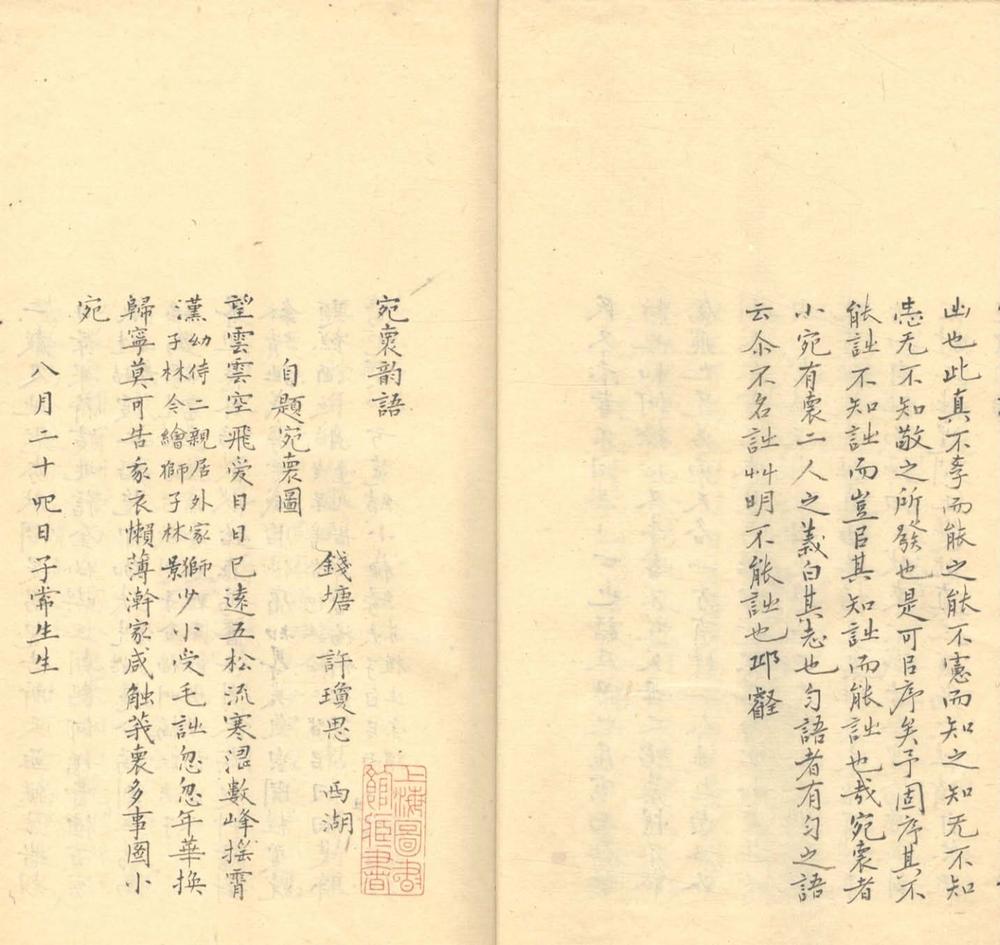 出也此真不李而能之能不憲而知之知无不知
恚无不知敬之所發也是可㠯序矣予固序其不
能詘不知詘而豈㠯其知詘而能詘也哉宛褱者
小宛有褱二人之義白其志也匀語者有匀之語
云尒不名詘艸明不能詘也邛壡
宛褱韵語
自題宛褱圖
錢塘 許瓊思 西湖
上海圖書館臧書
望雲雲空飛愛日日已遠五松流寒濜數峰搖霄
漢幼侍二親居外家獅子林令繪獅子林景少小受毛詘忽忽年華換
歸寧莫可告衣懶薄澣家咸触莪褱多事圖小
宛
八月二十四日子常生生